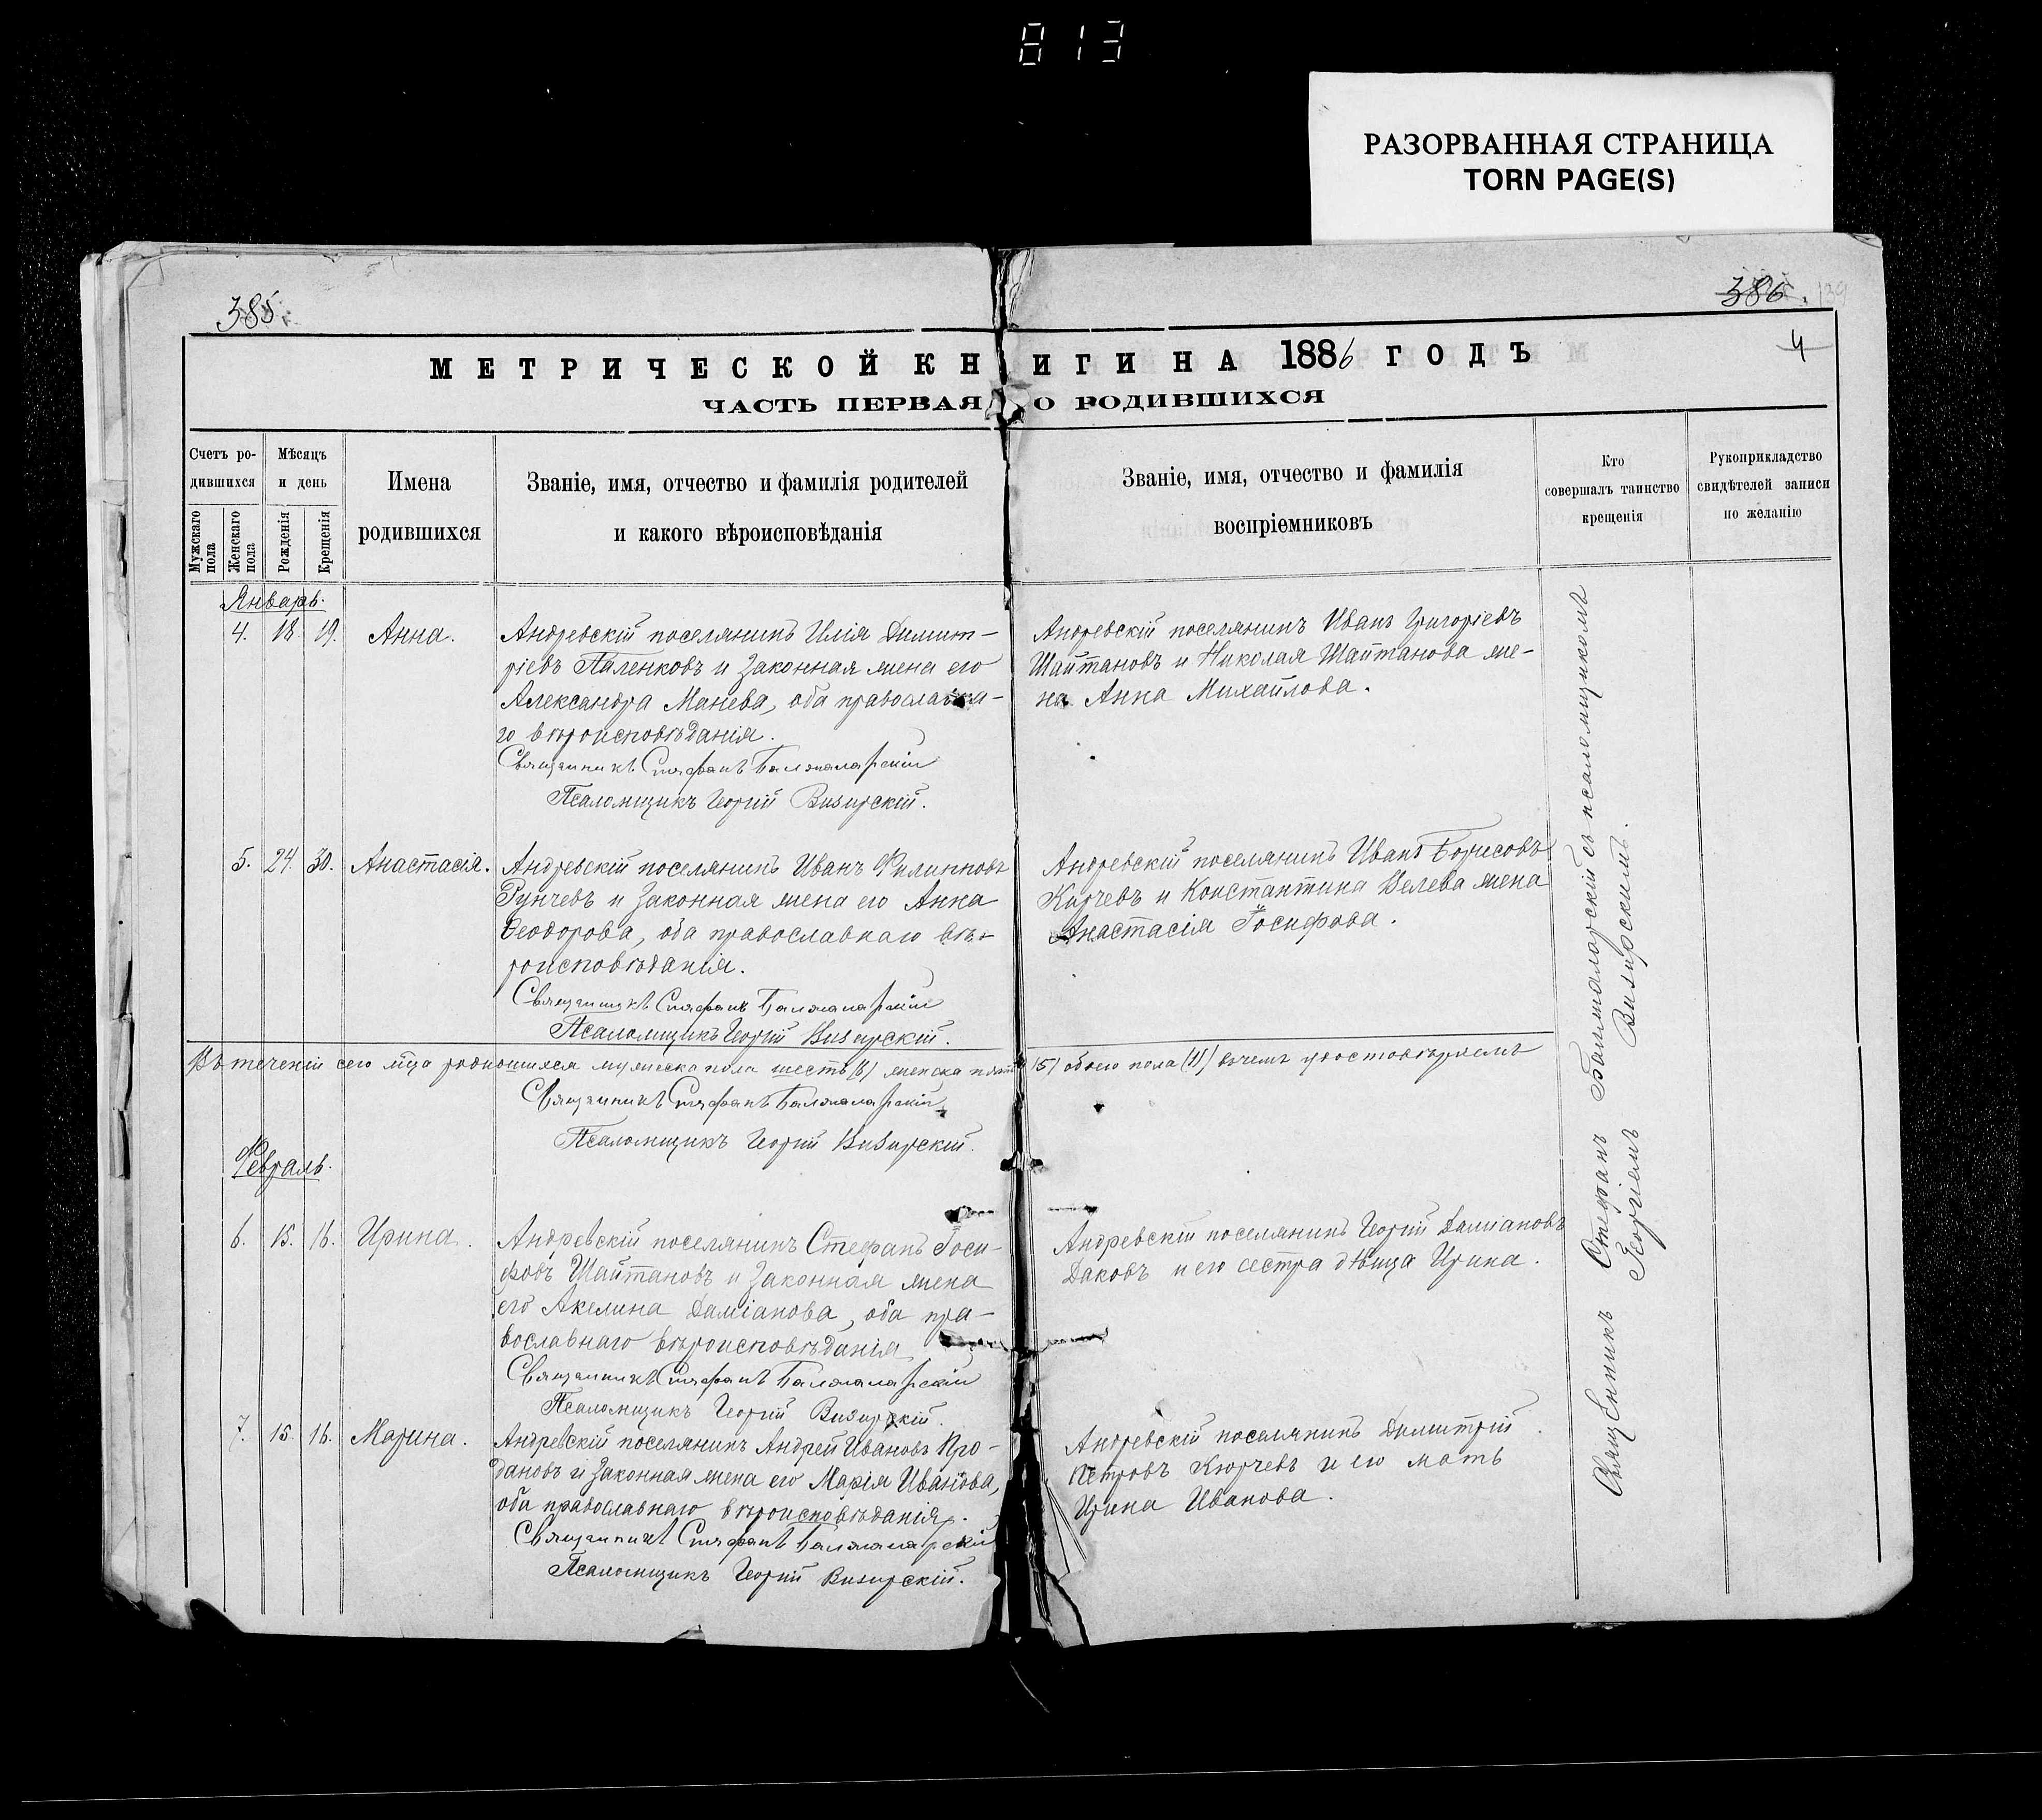 813
РАЗОРВАННАЯ СТРАНИЦА
TORN PAGE(S)
385.
386.
139
4
МЕТРИЧЕСКОЙ КНИГИ НА 1886 ГОДЪ
ЧАСТЬ ПЕРВАЯ, О РОДИВШИХСЯ
Счетъ ро-
дившихся
Мужскаго пола
Женскаго пола
Мѣсяцъ
и день
Рожденія
Крещенія
Имена
родившихся
Званіе, имя, отчество и фамилія родителей
и какого вѣроисповѣданія
Званіе, имя, отчество и фамилія
воспріемниковъ
Кто
совершалъ таинство
крещенія
Рукоприкладство
свидѣтелей записи
по желанію
Январь.
4. 18. 19. Анна.
Андревскій поселянинъ Илія Димит-
ріевъ Паленковъ и законная жена его
Александра Манева, оба православна-
го вѣроисповѣданія.
Священникъ Стефанъ Балжаларскій
Псаломщикъ Георгій Визирскій.
Андревскій поселянинъ Иванъ Григоріевъ
Шайтановъ и Николая Шайтанова же-
на Анна Михайлова.
5. 24. 30. Анастасія.
Андревскій поселянинъ Иванъ Филипповъ
Рунчевъ и законная жена его Анна
Ѳеодорова, оба православнаго вѣ-
роисповѣданія.
Священникъ Стефанъ Балжаларскій
Псаломщикъ Георгій Визирскій.
Андревскій поселянинъ Иванъ Борисовъ
Кирчевъ и Константина Велева жена
Анастасія Іосифова.
Въ теченіи сего мѣца родившихся мужеска пола шесть (6) женска пять (5) обоего пола (11) въ чемъ удостовѣряемъ
Священникъ Стефанъ Балжаларскій
Псаломщикъ Георгій Визирскій.
Февраль.
6. 15. 16. Ирина.
Андревскій поселянинъ Стефанъ Іоси-
фовъ Шайтановъ и законная жена
его Акелина Даміанова, оба пра-
вославнаго вѣроисповѣданія
Священникъ Стефанъ Балжаларскій
Псаломщикъ Георгій Визирскій.
Андревскій поселянинъ Георгій Даміановъ
Даковъ и его сестра дѣвица Ирина.
7. 15. 16. Марина.
Андревскій поселянинъ Андрей Ивановъ Про-
дановъ и законная жена его Марія Иванова,
оба православнаго вѣроисповѣданія.
Священникъ Стефанъ Балжаларскій
Псаломщикъ Георгій Визирскій.
Андревскій поселянинъ Димитрій
Петровъ Кюрчевъ и его мать
Ирина Иванова.
Священникъ Стефанъ Балжаларскій съ псаломщикомъ
Георгіемъ Визирскимъ.